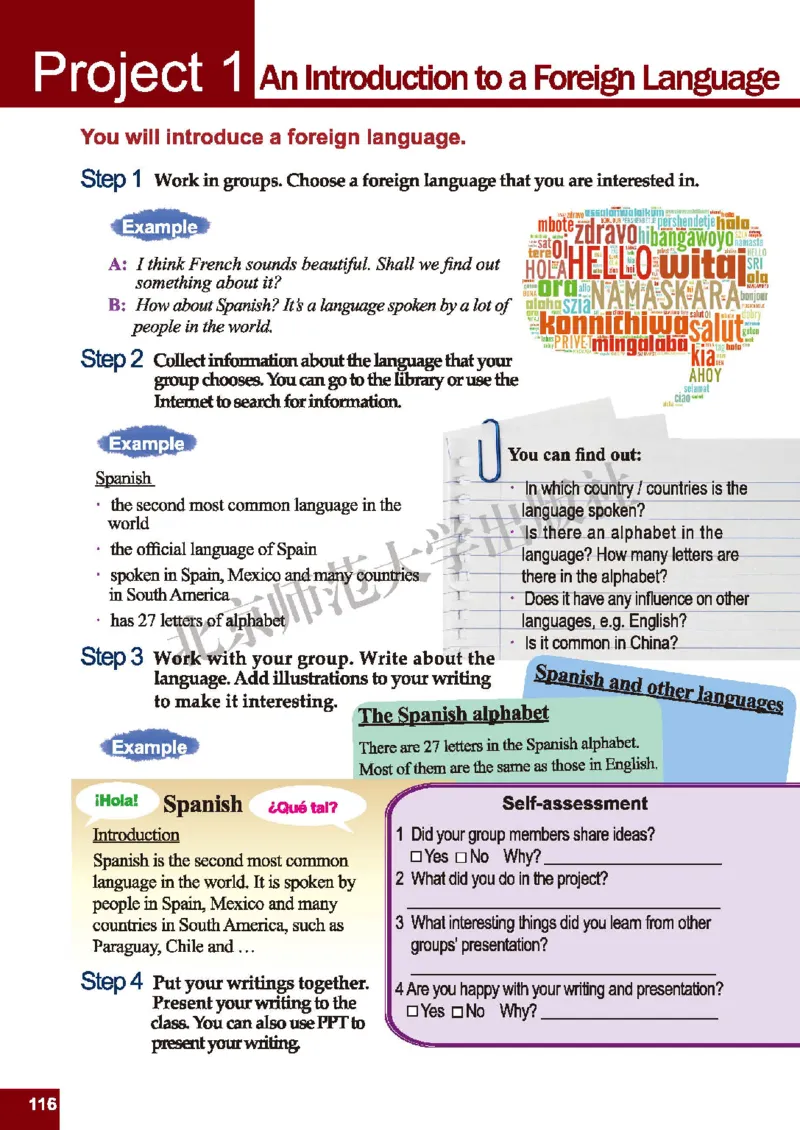 Project 1 An Introduction to a Foreign Language
You will introduce a foreign language.
Step 1 Work in groups. Choose a foreign language that you are interested in.
Example
A: I think French sounds beautiful. Shall we find out
something about it?
B: How about Spanish? It's a language spoken by a lot of
people in the world.
assalamwalaikum
mbote
zdravo
pershendetje
hola
hi
bangawoyo
namaste
sat
tere
oi
HOLA
HELLO
witaj
SRI
ola
ora
allo
NAMASKARA
bonjour
aloha
szia
konnichiwa
salut
PRIVET
mingalaba
kia
AHOY
selamat
ciao
Step 2 Collect information about the language that your
group chooses. You can go to the library or use the
Internet to search for information.
Example
Spanish
· the second most common language in the
world
· the official language of Spain
· spoken in Spain, Mexico and many countries
in South America
· has 27 letters of alphabet
You can find out:
· In which country / countries is the
language spoken?
· Is there an alphabet in the
language? How many letters are
there in the alphabet?
· Does it have any influence on other
languages, e.g. English?
· Is it common in China?
北京师范大学出版社
Step 3 Work with your group. Write about the
language. Add illustrations to your writing
to make it interesting.
Example
Spanish and other languages
The Spanish alphabet
There are 27 letters in the Spanish alphabet.
Most of them are the same as those in English.
¡Hola! Spanish ¿Qué tal?
Introduction
Spanish is the second most common
language in the world. It is spoken by
people in Spain, Mexico and many
countries in South America, such as
Paraguay, Chile and …
Step 4 Put your writings together.
Present your writing to the
class. You can also use PPT to
present your writing.
Self-assessment
1 Did your group members share ideas?
□ Yes □ No Why? ____________________
2 What did you do in the project?
____________________
3 What interesting things did you learn from other
groups' presentation?
____________________
4 Are you happy with your writing and presentation?
□ Yes □ No Why? ____________________
116